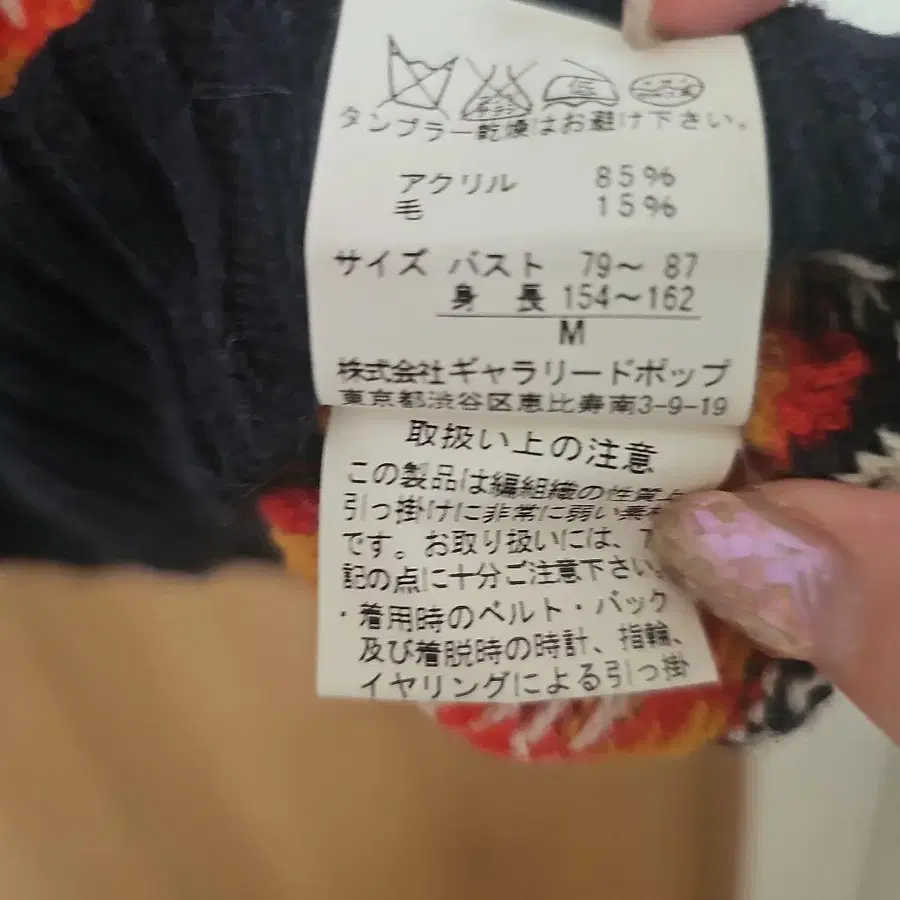 低
タンブラー乾燥はお避け下さい。
アクリル 85%
毛 15%
サイズ バスト 79〜 87
身 長 154〜162
M
株式会社ギャラリードポップ
東京都渋谷区恵比寿南3-9-19
取扱い上の注意
この製品は編組織の性質上
引っ掛けに非常に弱い素材
です。お取り扱いには、下
記の点に十分ご注意下さい。
・着用時のベルト・バック
及び着脱時の時計、指輪、
イヤリングによる引っ掛